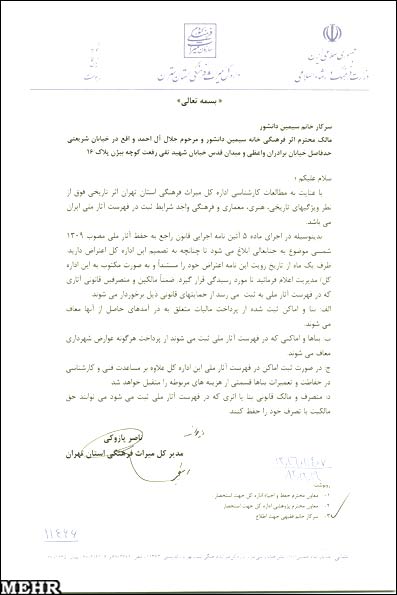 جمهوری اسلامی ایران
« بسمه تعالی »
سرکار خانم سیمین دانشور
مالک محترم اثر فرهنگی خانه سیمین دانشور و مرحوم جلال آل احمد و اقع در خیابان شریعتی
حدفاصل خیابان برادران واعظی و میدان قدس خیابان شهید تقی رفعت کوچه بیژن پلاک ۱۶
سلام علیکم ؛
با عنایت به مطالعات کارشناسی اداره کل میراث فرهنگی استان تهران اثر تاریخی فوق از
نظر ویژگیهای تاریخی، هنری، معماری و فرهنگی واجد شرایط ثبت در فهرست آثار ملی ایران
می باشد.
بدینوسیله در اجرای ماده ۵ آئین نامه اجرایی قانون راجع به حفظ آثار ملی مصوب ۱۳۰۹
شمسی موضوع به جنابعالی ابلاغ می شود تا چنانچه به تصمیم این اداره کل اعتراض دارید،
ظرف یک ماه از تاریخ رویت این نامه اعتراض خود را مستنداً و به صورت مکتوب به این اداره
کل/ مدیریت اعلام فرمائید تا مورد رسیدگی قرار گیرد. ضمناً مالکین و متصرفین قانونی آثاری
که در فهرست آثار ملی به ثبت می رسد از حمایتهای قانونی ذیل برخوردار می شوند.
الف: بنا و اماکن ثبت شده از پرداخت مالیات متعلق به در آمدهای حاصل از آنها معاف
می شوند.
ب: بناها و اماکنی که در فهرست آثار ملی ثبت می شوند از پرداخت هرگونه عوارض شهرداری
معاف می شوند
ج: در صورت ثبت اماکن در فهرست آثار ملی این اداره کل علاوه بر مساعدت فنی و کارشناسی
در حفاظت و تعمیرات بناها قسمتی از هزینه های مربوطه را متقبل خواهد شد
د: متصرف و مالک قانونی بنا یا اثری که در فهرست آثار ملی ثبت می شود می توانند حق
مالکیت با تصرف خود را حفظ کنند.
ناصر پازوکی
مدیر کل میراث فرهنگی استان تهران
رونوشت
۱- معاون محترم حفظ و احیاء اداره کل جهت استحضار
۲- معاون محترم پژوهشی اداره کل جهت استحضار
۳- سرکار خانم فقیهی جهت اطلاع
MEHR